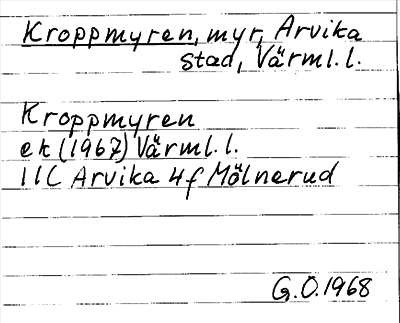 Kroppmyren, myr, Arvika
stad, Värml. l.
Kroppmyren
ek (1967) Värml. l.
11C Arvika 4f Mölnerud
G.O. 1968